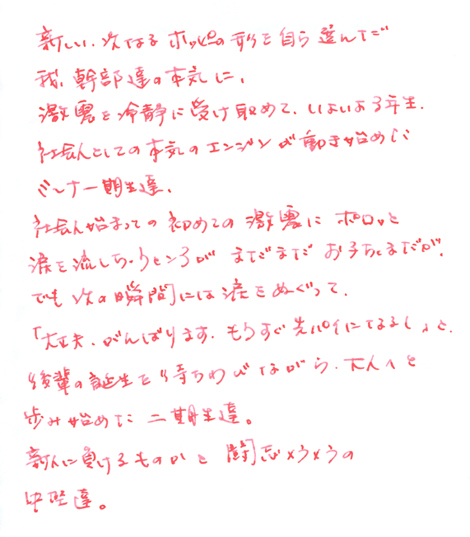 新しい、次なるホッピーの形を自ら選んだ
我、幹部達の本気に、
激震を冷静に受け取めて、いよいよ3年生、
社会人としての本気のエンジンが動き始めた
ミーナ一期生達、
社会人始まっての初めての激震にポロッと
涙を流しちゃうところがまだまだお子ちゃまだが、
でも次の瞬間には涙をぬぐって、
「大丈夫、がんばります、もうすぐ先パイになるし」と、
後輩の誕生を待ちわびながら、大人へと
歩み始めた二期生達。
新人に負けるものかと闘志メラメラの
中堅達。